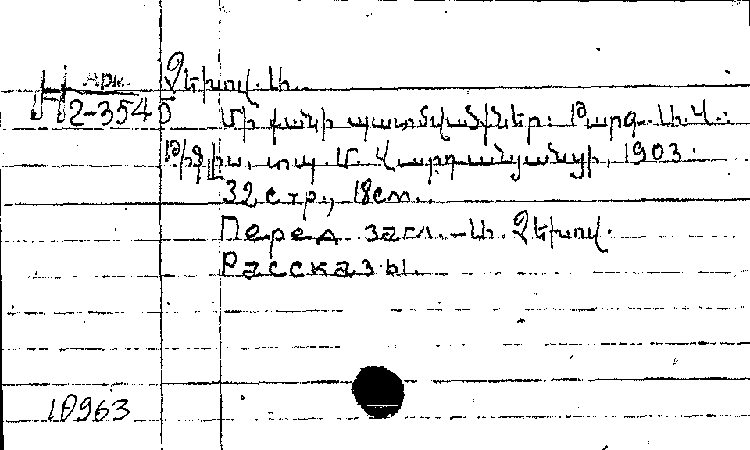 Арм. Չեխով. Ա.
Н 2-3540
Մի քանի պատմվածքներ: Թարգ. Ա. Վ.:
Թիֆլիս, տպ. Մ. Վարդանյանցի, 1903.
32 стр., 18см.
Перед загл. - Ա. Չեխով.
Рассказы.
10963